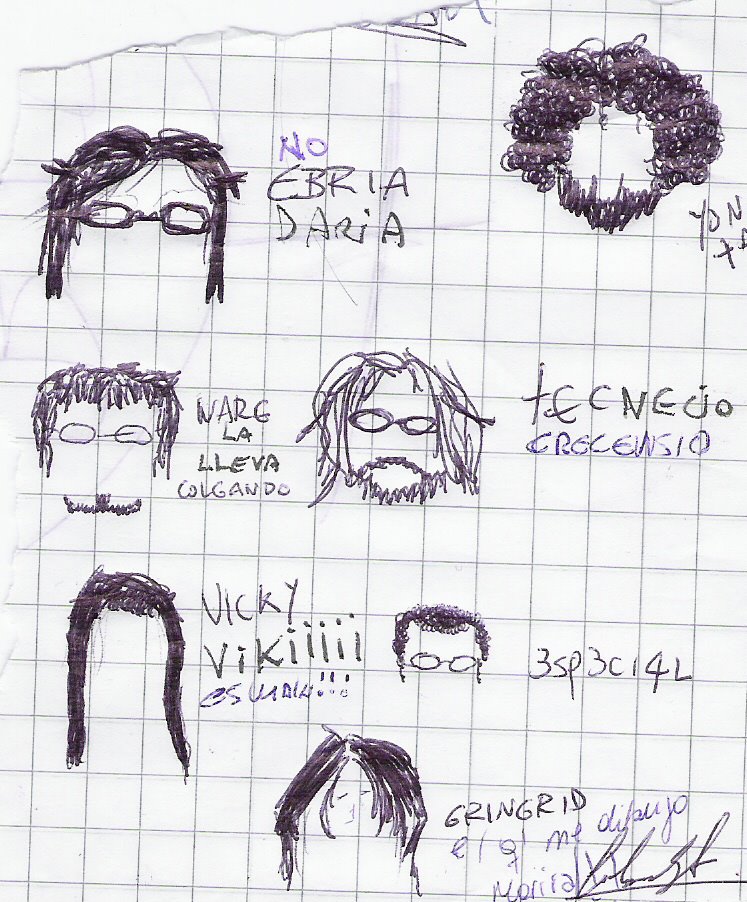 NO
EBRIA
DARiA
YON
NARE
LA
LLEVA
COLGANDO
tECNEcio
CRECENSIO
VICKY
Vikiiiii
es mala!!!
3sp3ci4L
GRINGRID
el q' me dibujo
Morira